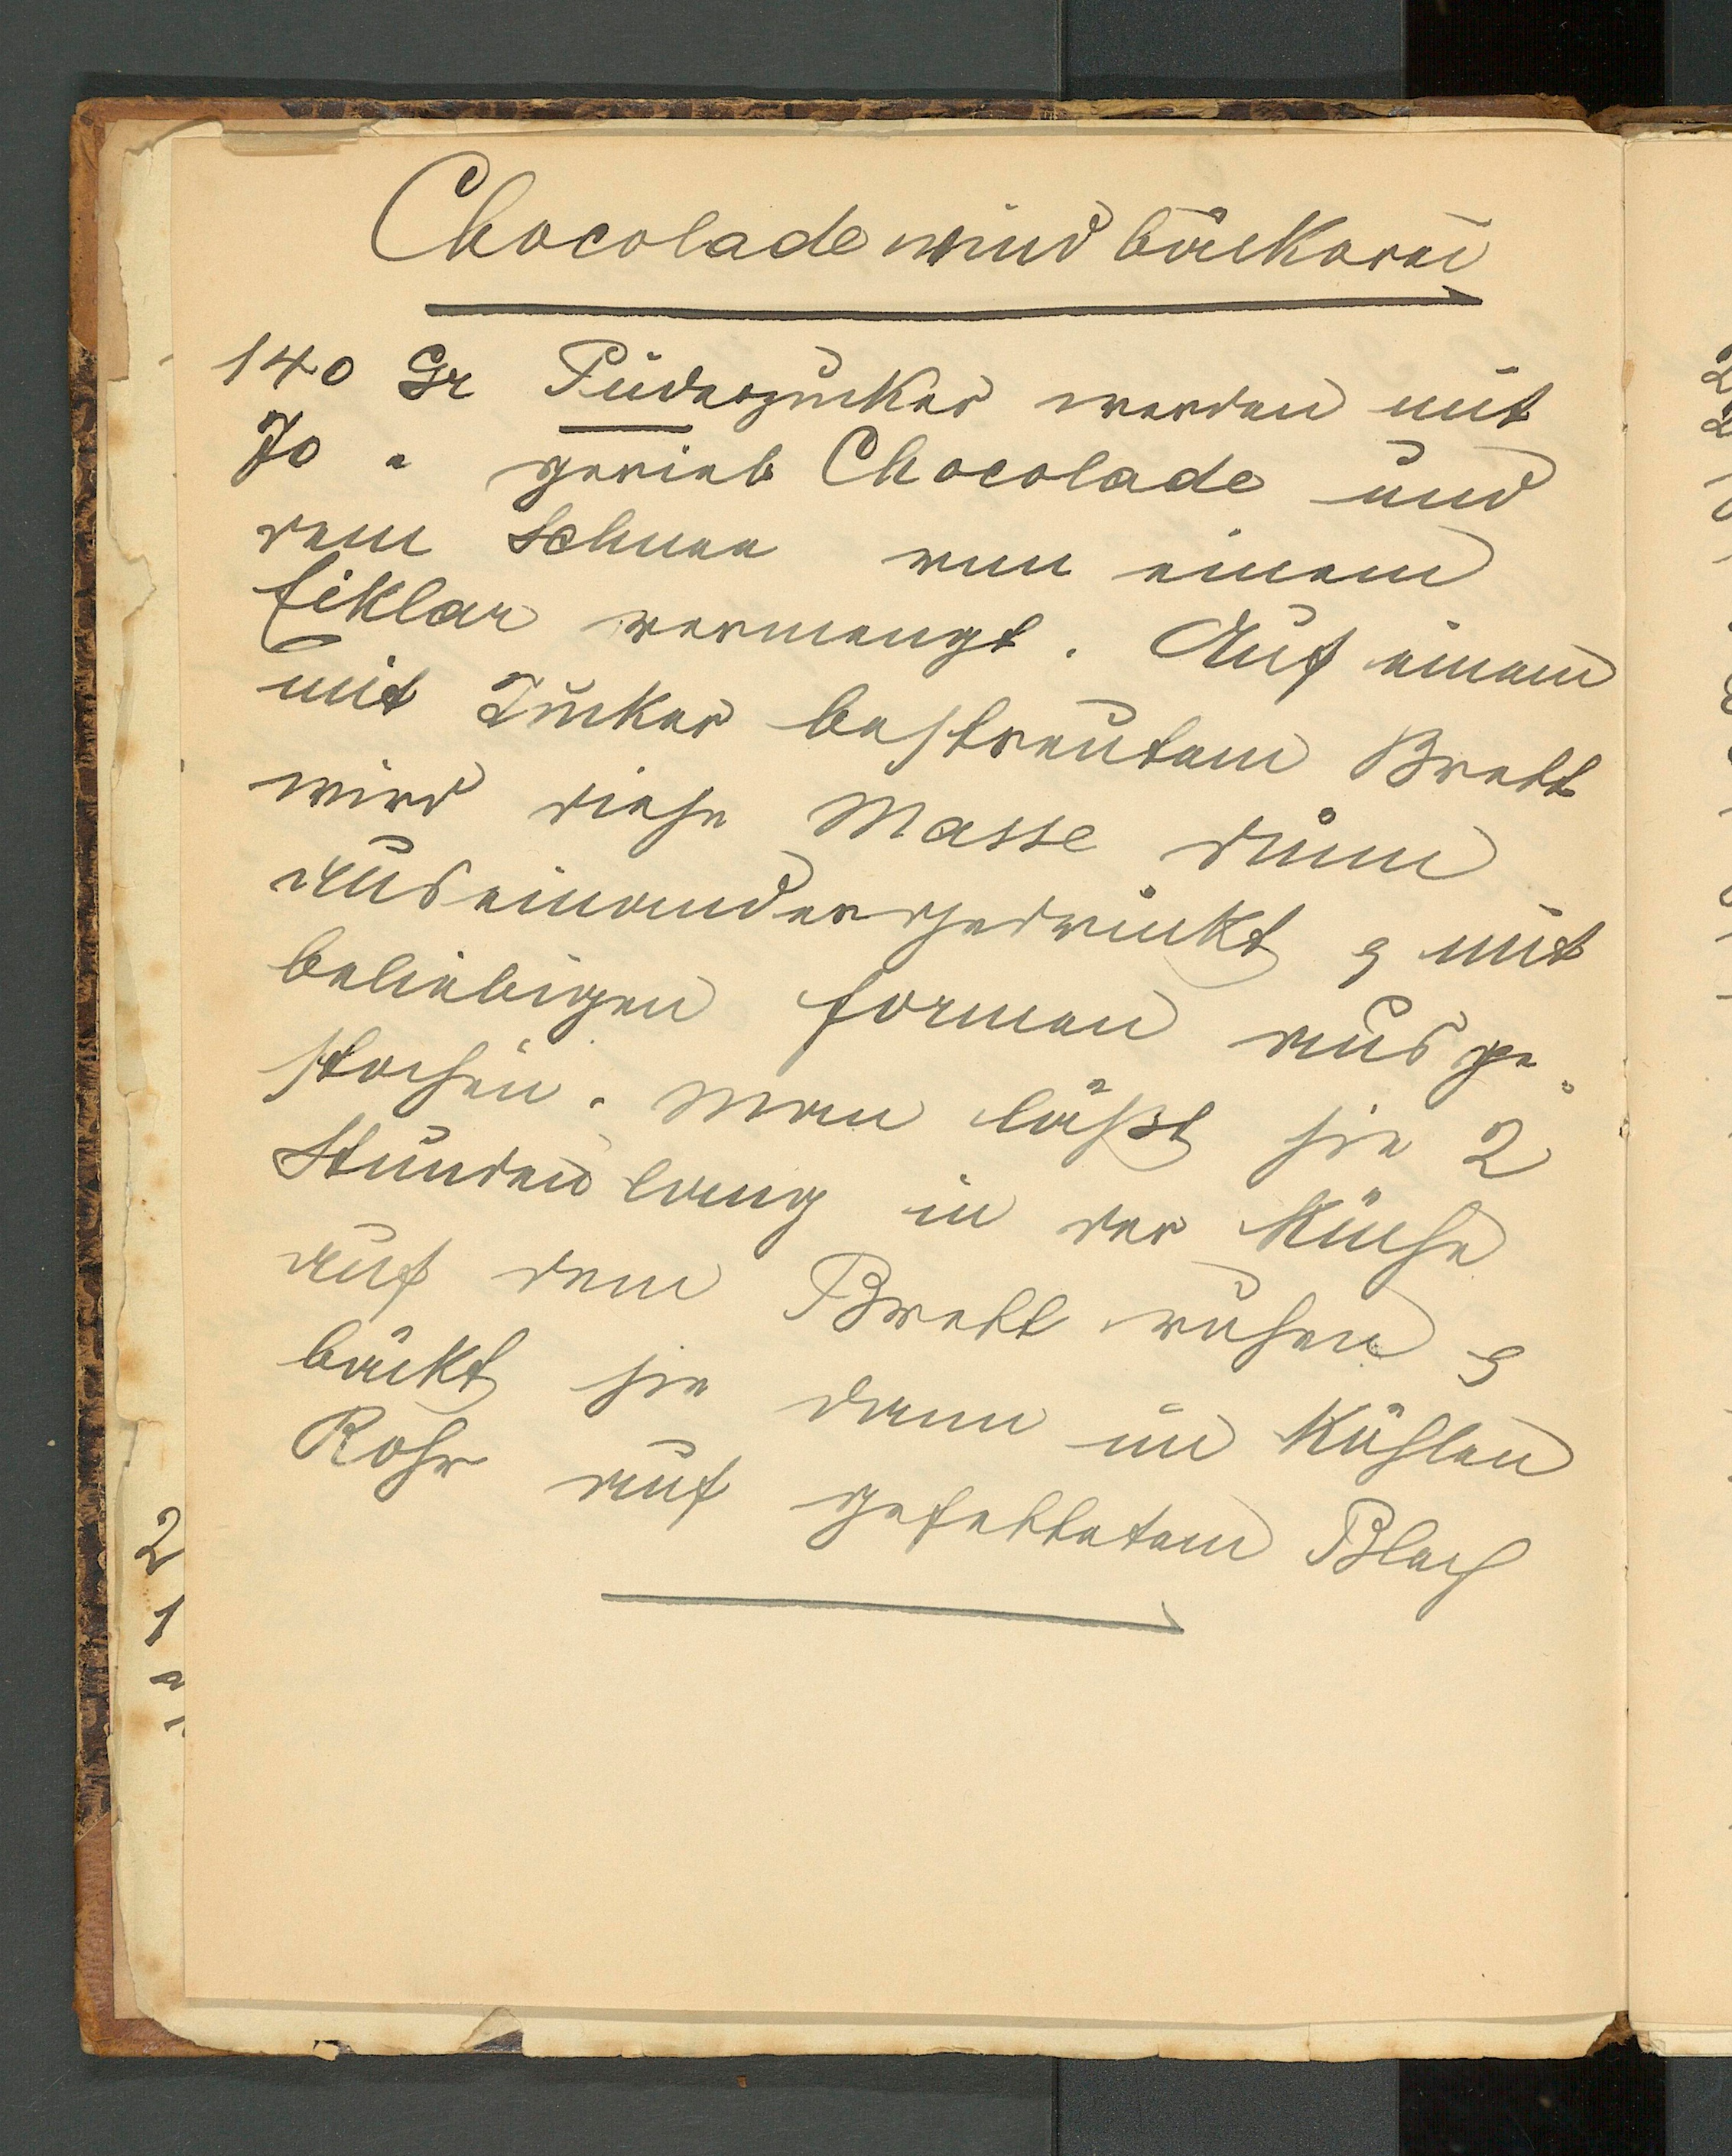 Chocoladewindbäckerei
140 Gr Puderzucker werden mit
70 " gerieb. Chocolade und
dem Schnee von einem
Eiklar vermengt. Auf einem
mit Zucker bestreutem Brett
wird diese Masse dünn
auseinandergedrückt & mit
beliebigen Formen ausge-
stochen. Man läßt sie 2
Stunden lang in der Küche
auf dem Brett ruhen &
bäckt sie dann im kühlen
Rohr auf gefettetem Blech
2
1